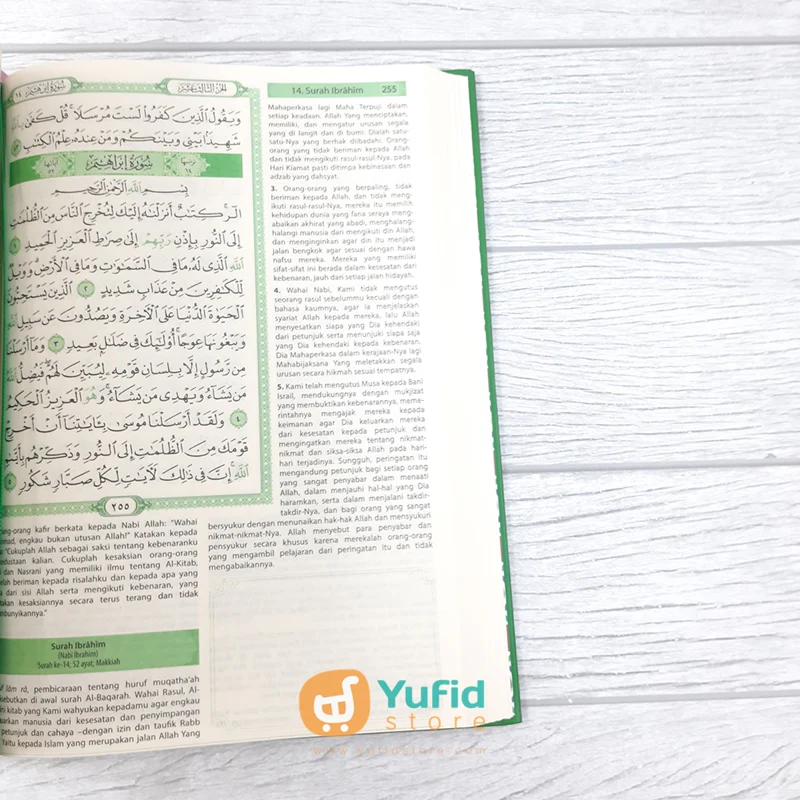 سُورَةُ إِبْرَاهِيم ١٤
الجُزْءُ الثَّالِثَ عَشَر
وَيَقُولُ الَّذِينَ كَفَرُوا لَسْتَ مُرْسَلًا ۚ قُلْ كَفَىٰ
شَهِيدًا بَيْنِي وَبَيْنَكُمْ وَمَنْ عِندَهُ عِلْمُ الْكِتَٰبِ
سُورَةُ إِبْرَاهِيم
بِسْمِ اللَّهِ الرَّحْمَٰنِ الرَّحِيمِ
الٓر ۚ كِتَٰبٌ أَنزَلْنَٰهُ إِلَيْكَ لِتُخْرِجَ النَّاسَ مِنَ الظُّلُمَٰتِ
إِلَى النُّورِ بِإِذْنِ رَبِّهِمْ إِلَىٰ صِرَٰطِ الْعَزِيزِ الْحَمِيدِ ١
اللَّهِ الَّذِي لَهُ مَا فِي السَّمَٰوَٰتِ وَمَا فِي الْأَرْضِ ۗ وَوَيْلٌ
لِّلْكَٰفِرِينَ مِنْ عَذَابٍ شَدِيدٍ ٢ الَّذِينَ يَسْتَحِبُّونَ
الْحَيَوٰةَ الدُّنْيَا عَلَى الْآخِرَةِ وَيَصُدُّونَ عَن سَبِيلِ اللَّهِ
وَيَبْغُونَهَا عِوَجًا ۚ أُولَٰئِكَ فِي ضَلَٰلٍ بَعِيدٍ ٣ وَمَا أَرْسَلْنَا
مِن رَّسُولٍ إِلَّا بِلِسَانِ قَوْمِهِ لِيُبَيِّنَ لَهُمْ ۖ فَيُضِلُّ اللَّهُ
مَن يَشَاءُ وَيَهْدِي مَن يَشَاءُ ۚ وَهُوَ الْعَزِيزُ الْحَكِيمُ
٤ وَلَقَدْ أَرْسَلْنَا مُوسَىٰ بِـَٔايَٰتِنَا أَنْ أَخْرِجْ
قَوْمَكَ مِنَ الظُّلُمَٰتِ إِلَى النُّورِ وَذَكِّرْهُم بِأَيَّىٰمِ
اللَّهِ ۚ إِنَّ فِي ذَٰلِكَ لَآيَٰتٍ لِّكُلِّ صَبَّارٍ شَكُورٍ ٥
٢٥٥
orang kafir berkata kepada Nabi Allah: "Wahai
engkau bukan utusan Allah!" Katakan kepada
"Cukuplah Allah sebagai saksi tentang kebenaranku
kalian. Cukuplah kesaksian orang-orang
dan Nasrani yang memiliki ilmu tentang Al-Kitab,
beriman kepada risalahku dan kepada apa yang
dari sisi Allah serta mengikuti kebenaran, yang
kesaksiannya secara terus terang dan tidak
Surah Ibrâhîm
(Nabi Ibrahim)
Surah ke-14; 52 ayat; Makkiah
lâm râ, pembicaraan tentang huruf muqatha'ah
disebutkan di awal surah Al-Baqarah. Wahai Rasul, Al-
ini kitab yang Kami wahyukan kepadamu agar engkau
manusia dari kesesatan dan penyimpangan
petunjuk dan cahaya –dengan izin dan taufik Rabb
Yaitu kepada Islam yang merupakan jalan Allah Yang
14. Surah Ibrâhîm 255
Mahaperkasa lagi Maha Terpuji dalam
setiap keadaan. Allah Yang menciptakan,
memiliki, dan mengatur urusan segala
yang di langit dan di bumi. Dialah satu-
satu-Nya yang berhak diibadahi. Orang-
orang yang tidak beriman kepada Allah
dan tidak mengikuti rasul-rasul-Nya, pada
Hari Kiamat pasti ditimpa kebinasaan dan
adzab yang dahsyat.
3. Orang-orang yang berpaling, tidak
beriman kepada Allah, dan tidak meng-
ikuti rasul-rasul-Nya, mereka itu memilih
kehidupan dunia yang fana seraya menga-
baikan akhirat yang abadi, menghalang-
halangi manusia dari mengikuti din Allah,
dan menginginkan agar din itu menjadi
jalan bengkok agar sesuai dengan hawa
nafsu mereka. Mereka yang memiliki
sifat-sifat ini berada dalam kesesatan dari
kebenaran, jauh dari setiap jalan hidayah.
4. Wahai Nabi, Kami tidak mengutus
seorang rasul sebelummu kecuali dengan
bahasa kaumnya, agar ia menjelaskan
syariat Allah kepada mereka, lalu Allah
menyesatkan siapa yang Dia kehendaki
dari petunjuk serta menunjuki siapa saja
yang Dia kehendaki kepada kebenaran.
Dia Mahaperkasa dalam kerajaan-Nya lagi
Mahabijaksana Yang meletakkan segala
urusan secara hikmah sesuai tempatnya.
5. Kami telah mengutus Musa kepada Bani
Israil, mendukungnya dengan mukjizat
yang membuktikan kebenarannya, meme-
rintahnya mengajak mereka kepada
keimanan agar Dia keluarkan mereka
dari kesesatan kepada petunjuk dan
mengingatkan mereka tentang nikmat-
nikmat dan siksa-siksa Allah pada hari-
hari terjadinya. Sungguh, peringatan itu
mengandung petunjuk bagi setiap orang
yang sangat penyabar dalam menaati
Allah, dalam menjauhi hal-hal yang Dia
haramkan, serta dalam menjalani takdir-
takdir-Nya, dan bagi orang yang sangat
bersyukur dengan menunaikan hak-hak Allah dan mensyukuri
nikmat-nikmat-Nya. Allah menyebut para penyabar dan
pensyukur secara khusus karena merekalah orang-orang
yang mengambil pelajaran dari peringatan itu dan tidak
mengabaikannya.
Yufid
store
www.yufidstore.com